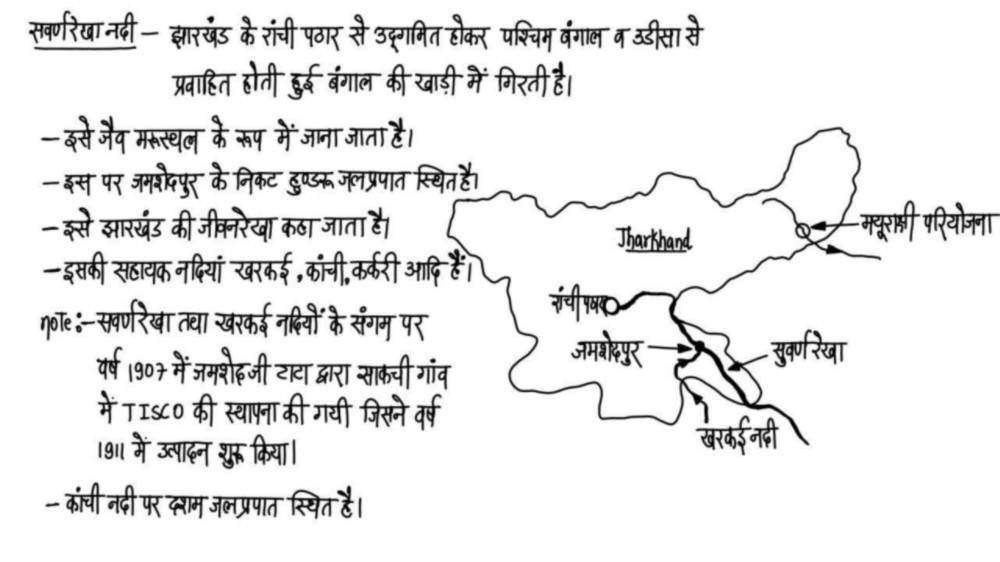 सवर्णरेखा नदी – झारखंड के रांची पठार से उद्गमित होकर पश्चिम बंगाल व उडीसा से
प्रवाहित होती हुई बंगाल की खाड़ी में गिरती है।
– इसे जैव मरुस्थल के रूप में जाना जाता है।
– इस पर जमशेदपुर के निकट हुण्डरू जलप्रपात स्थित है।
– इसे झारखंड की जीवनरेखा कहा जाता है।
– इसकी सहायक नदियां खरकई, कांची, कर्करी आदि हैं।
note:– सवर्णरेखा तथा खरकई नदियों के संगम पर
वर्ष 1907 में जमशेदजी टाटा द्वारा साकची गांव
में TISCO की स्थापना की गयी जिसने वर्ष
1911 में उत्पादन शुरू किया।
– कांची नदी पर दशम जलप्रपात स्थित है।
Jharkhand
मयूराक्षी परियोजना
रांची
जमशेदपुर
सुवर्णरेखा
खरकई नदी